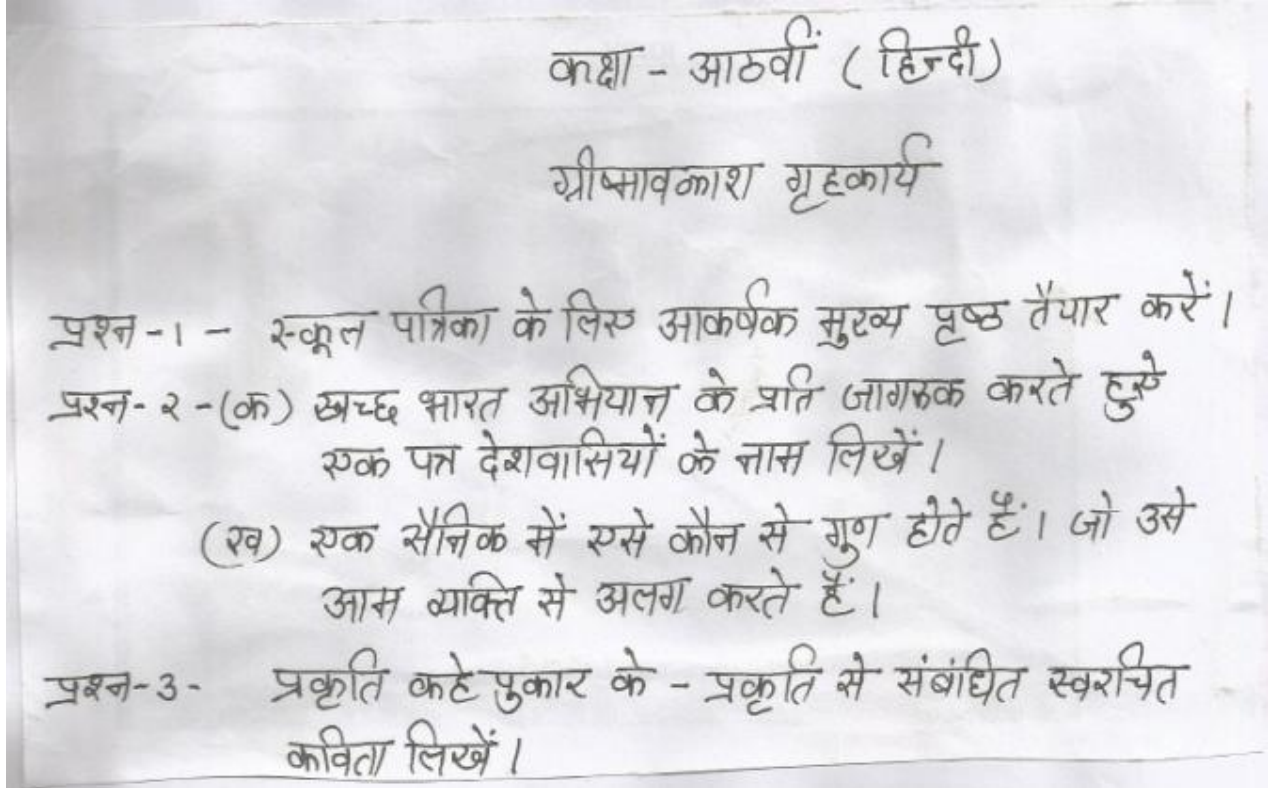 कक्षा - आठवीं ( हिन्दी )
ग्रीष्मावकाश गृहकार्य
प्रश्न -1 - स्कूल पत्रिका के लिए आकर्षक मुख्य पृष्ठ तैयार करें ।
प्रश्न- २ -(क) स्वच्छ भारत अभियान के प्रति जागरूक करते हुए
एक पत्र देशवासियों के नाम लिखें ।
(ख) एक सैनिक में एसे कौन से गुण होते हैं । जो उसे
आम व्यक्ति से अलग करते हैं ।
प्रश्न-3- प्रकृति कहे पुकार के - प्रकृति से संबंधित स्वरचित
कविता लिखें ।